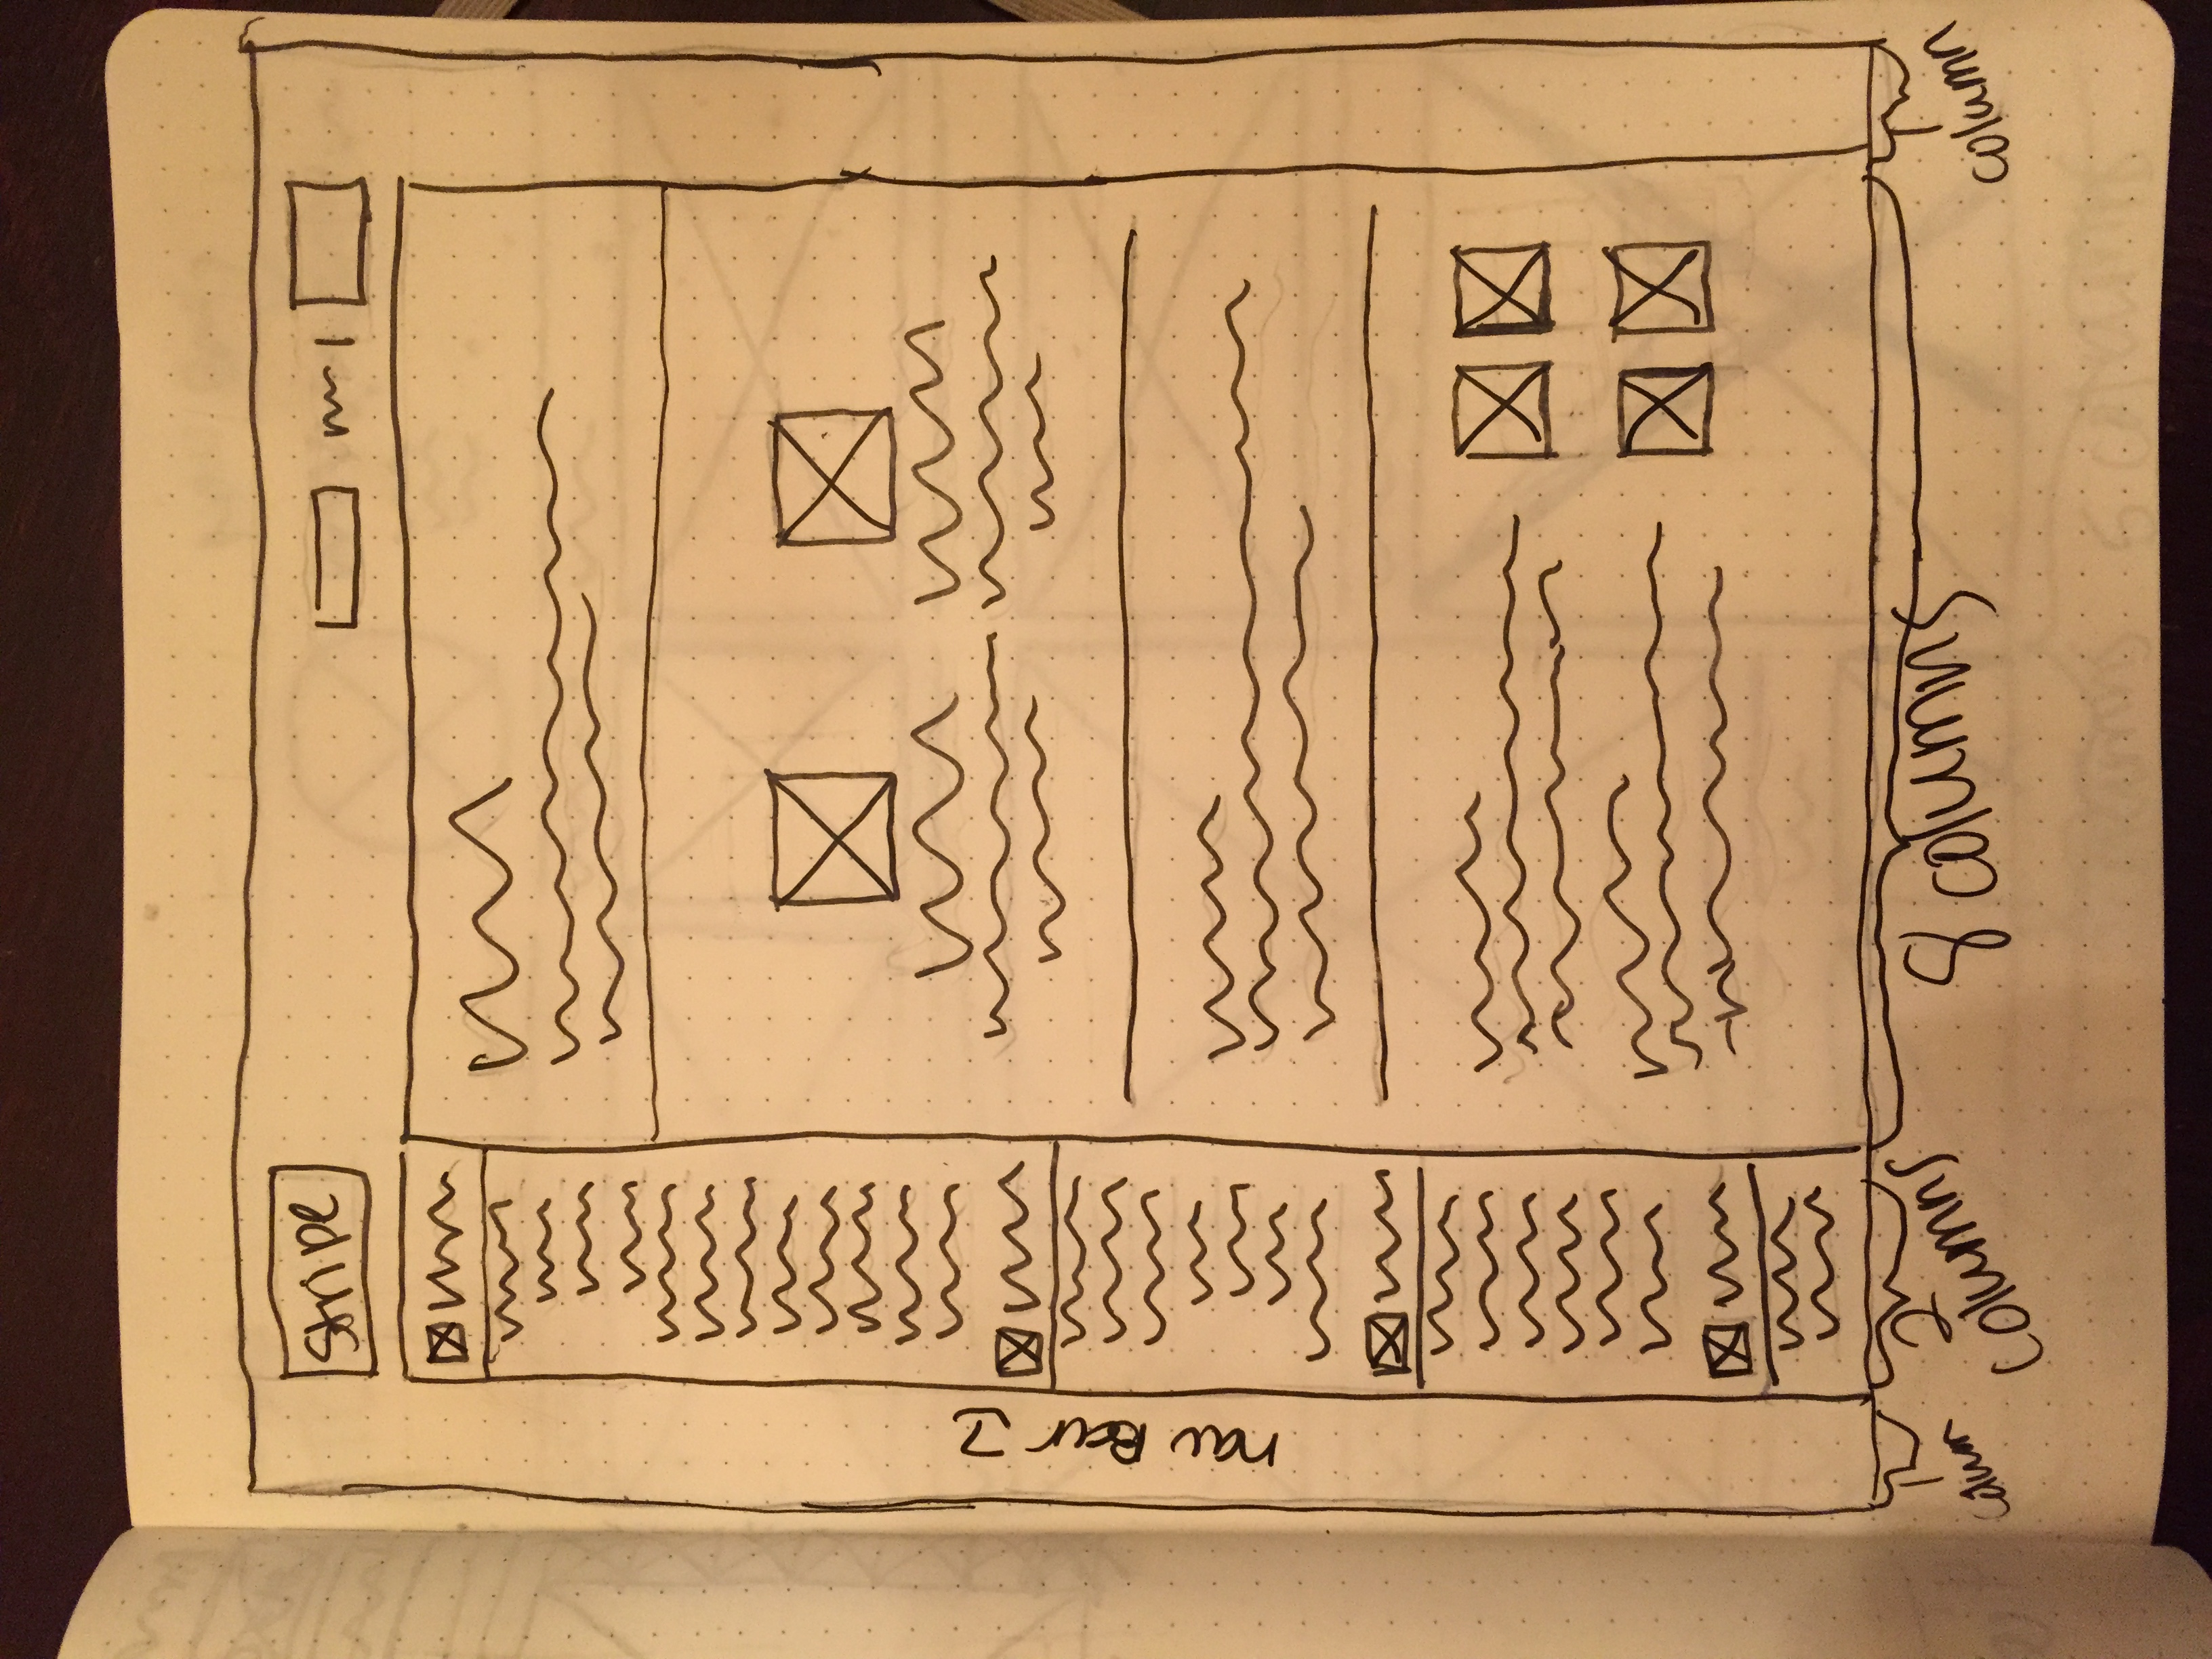 Stripe
nav Bar
2
columns
8 columns
1
column
1
column